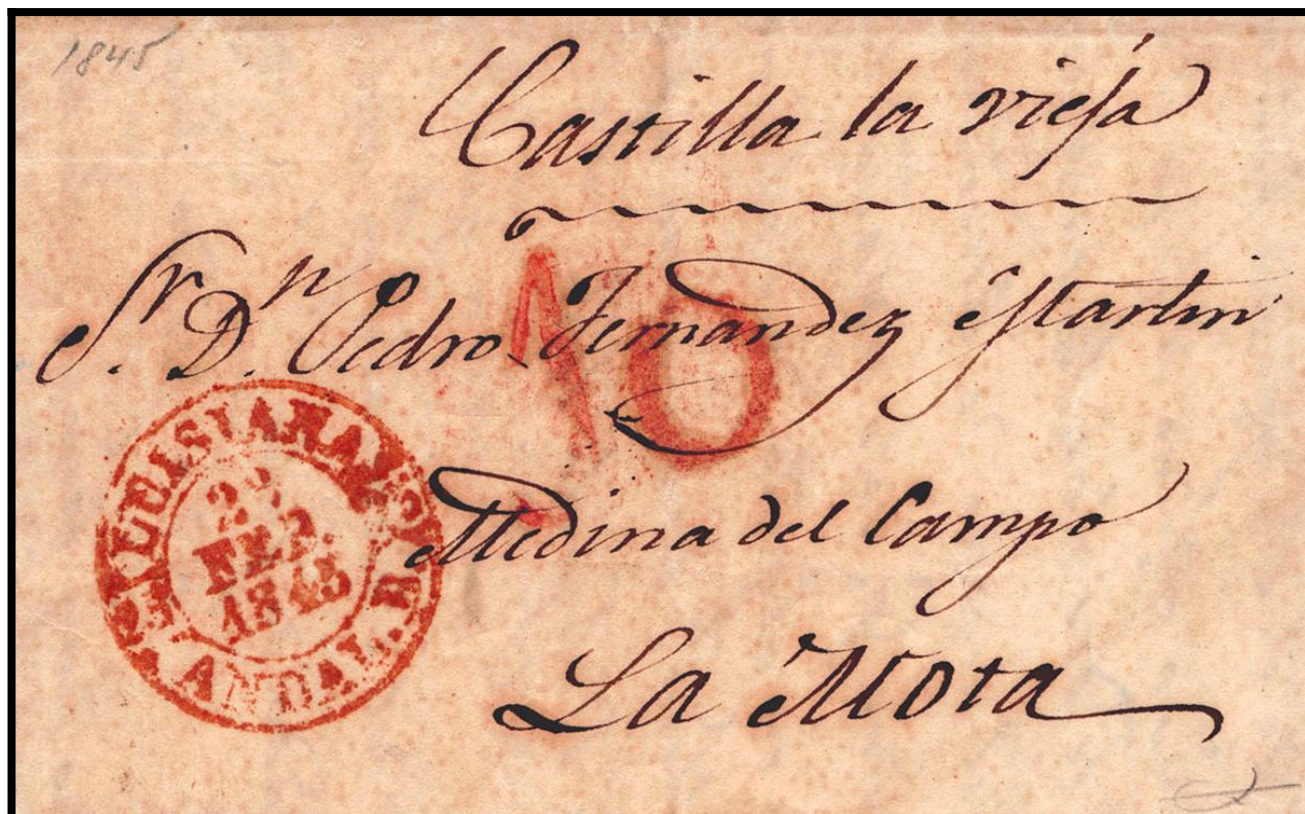 1845
Castilla la vieja
Sr. Dn. Pedro Fernandez Martin
10
LUISIANA
FEB.
1845
ANDAL. B.
Medina del Campo
La Mota